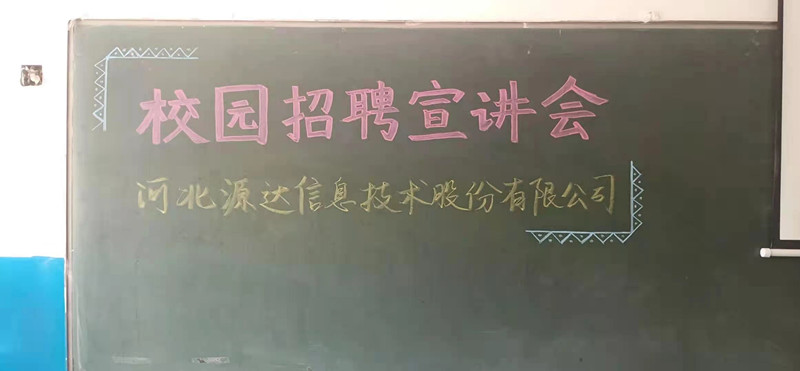 校园招聘宣讲会
河北源达信息技术股份有限公司